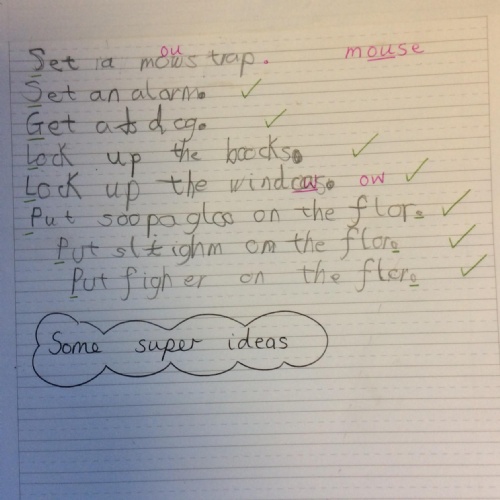 Set a mows trap. ou mouse
Set an alarm.
Get a dog.
Lock up the boocks.
Lock up the windcas. ow
Put soopaglos on the flor.
Put on the flor.
Put figher on the flor.
Some super ideas